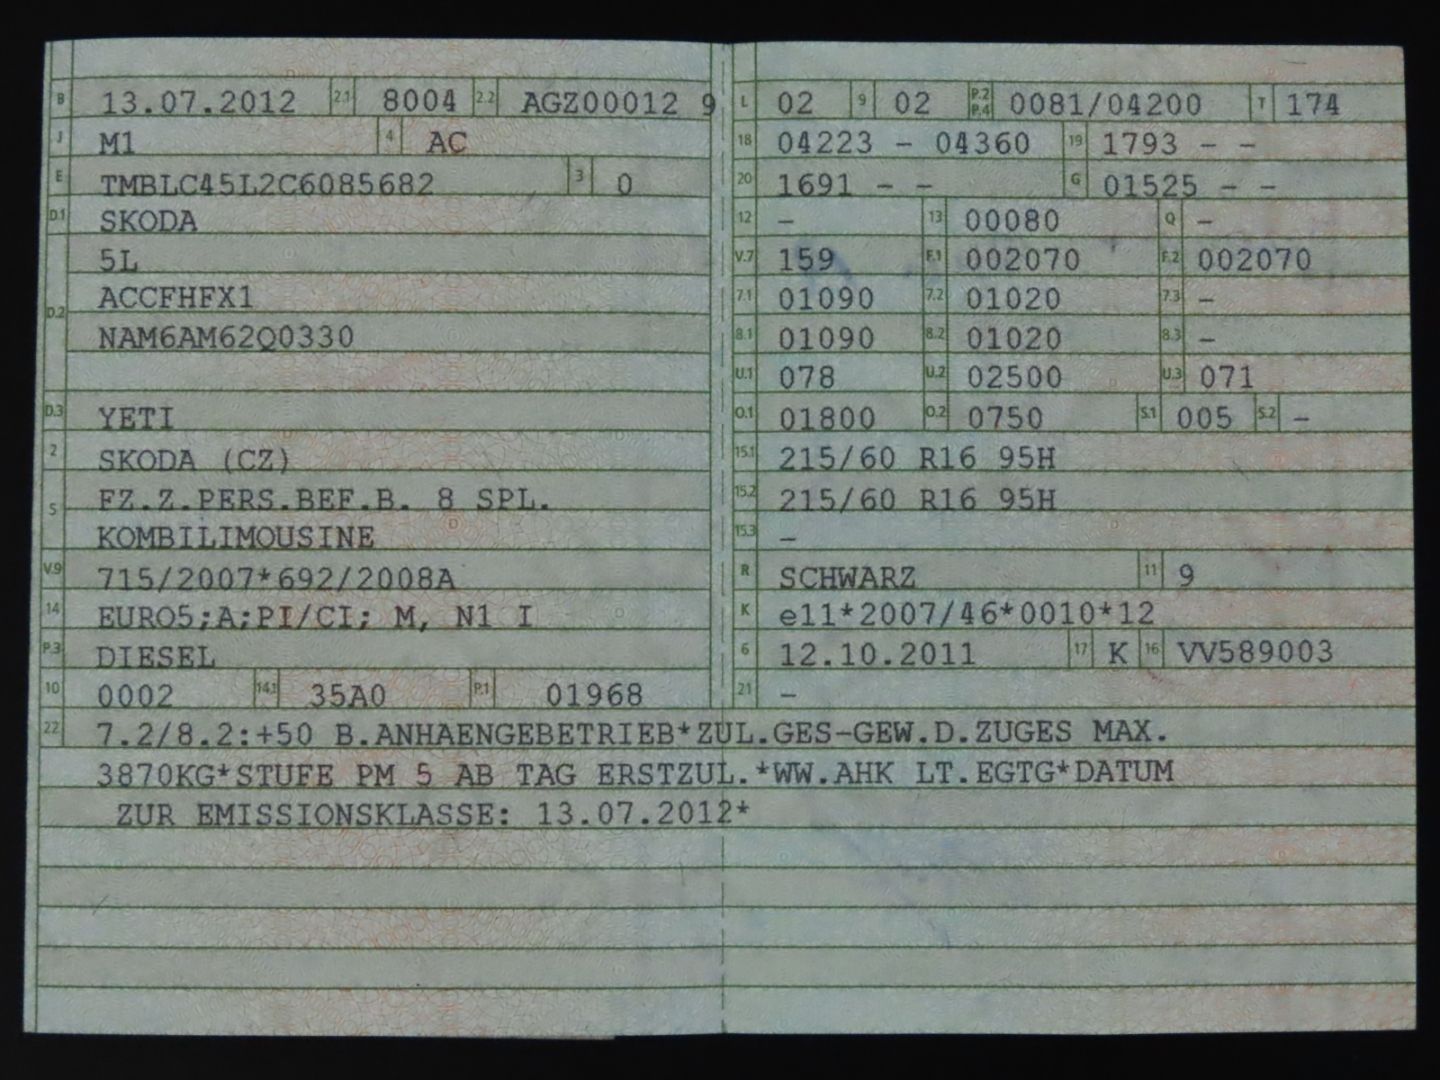 B 13.07.2012 2.1 8004 2.2 AGZ00012 9
J M1 4 AC
E TMBLC45L2C6085682 3 0
D.1 SKODA
5L
ACCFHFX1
D.2
NAM6AM62Q0330
D.3 YETI
2 SKODA (CZ)
FZ.Z.PERS.BEF.B. 8 SPL.
5
KOMBILIMOUSINE
V.9 715/2007*692/2008A
14 EURO5;A;PI/CI; M, N1 I
P.3 DIESEL
10 0002 14.1 35A0 P.1 01968
L 02 9 02 P.2 P.4 0081/04200 T 174
18 04223 - 04360 19 1793 - -
20 1691 - - G 01525 - -
12 - 13 00080 Q -
V.7 159 F.1 002070 F.2 002070
7.1 01090 7.2 01020 7.3 -
8.1 01090 8.2 01020 8.3 -
U.1 078 U.2 02500 U.3 071
O.1 01800 O.2 0750 S.1 005 S.2 -
15.1 215/60 R16 95H
15.2 215/60 R16 95H
15.3 -
R SCHWARZ 11 9
K e11*2007/46*0010*12
6 12.10.2011 17 K 16 VV589003
21 -
22 7.2/8.2:+50 B.ANHAENGEBETRIEB*ZUL.GES-GEW.D.ZUGES MAX.
3870KG*STUFE PM 5 AB TAG ERSTZUL.*WW.AHK LT.EGTG*DATUM
ZUR EMISSIONSKLASSE: 13.07.2012*